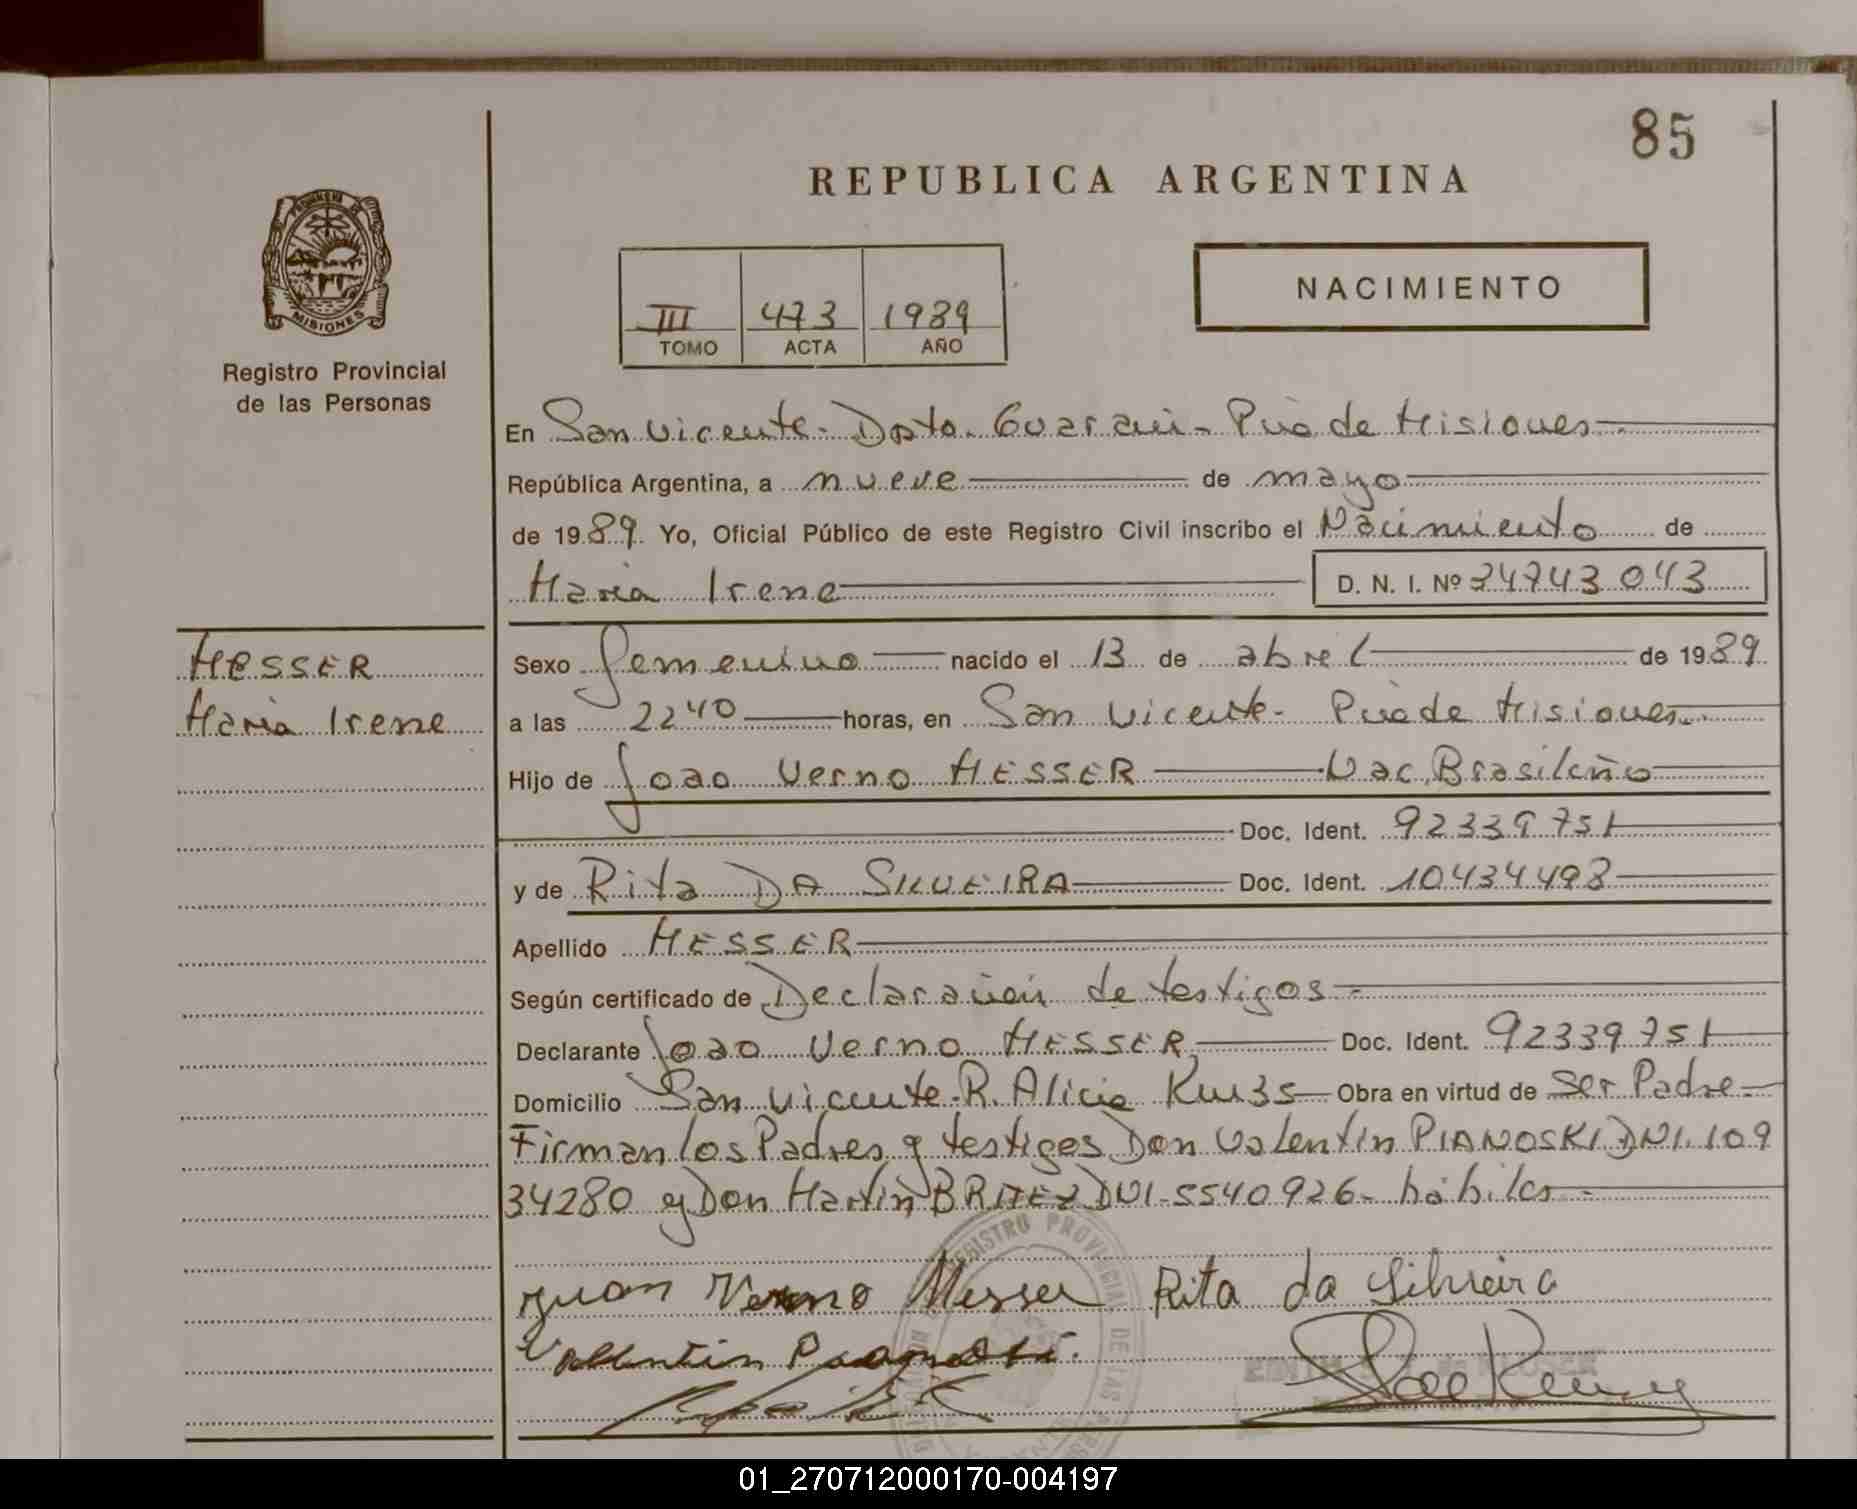 85
REPUBLICA ARGENTINA
PROVINCIA DE
MISIONES
Registro Provincial
de las Personas
NACIMIENTO
III 473 1989
TOMO ACTA AÑO
En San Vicente - Dpto. Guaraní - Pcia de Misiones
República Argentina, a nueve de mayo
de 1989 Yo, Oficial Público de este Registro Civil inscribo el Nacimiento de
Maria Irene D. N. I. Nº 34743043
MESSER
Maria Irene
Sexo Femenino nacido el 13 de abril de 1989
a las 2240 horas, en San Vicente - Pcia de Misiones
Hijo de Joao Verno MESSER Nac. Brasileño
Doc. Ident. 92339751
y de Rita DA SILVEIRA Doc. Ident. 10434498
Apellido MESSER
Según certificado de Declaración de testigos
Declarante Joao Verno MESSER Doc. Ident. 92339751
Domicilio San Vicente - R. Alicia Km35 Obra en virtud de Ser Padre
Firman los Padres y testigos Don Valentín PIANOSKI DNI. 109
34280 y Don Martín BRITEZ DNI-5540926- hábiles
REGISTRO PROVINCIAL DE LAS
Juan Verno Messer Rita da Silveira
Valentin
01_270712000170-004197